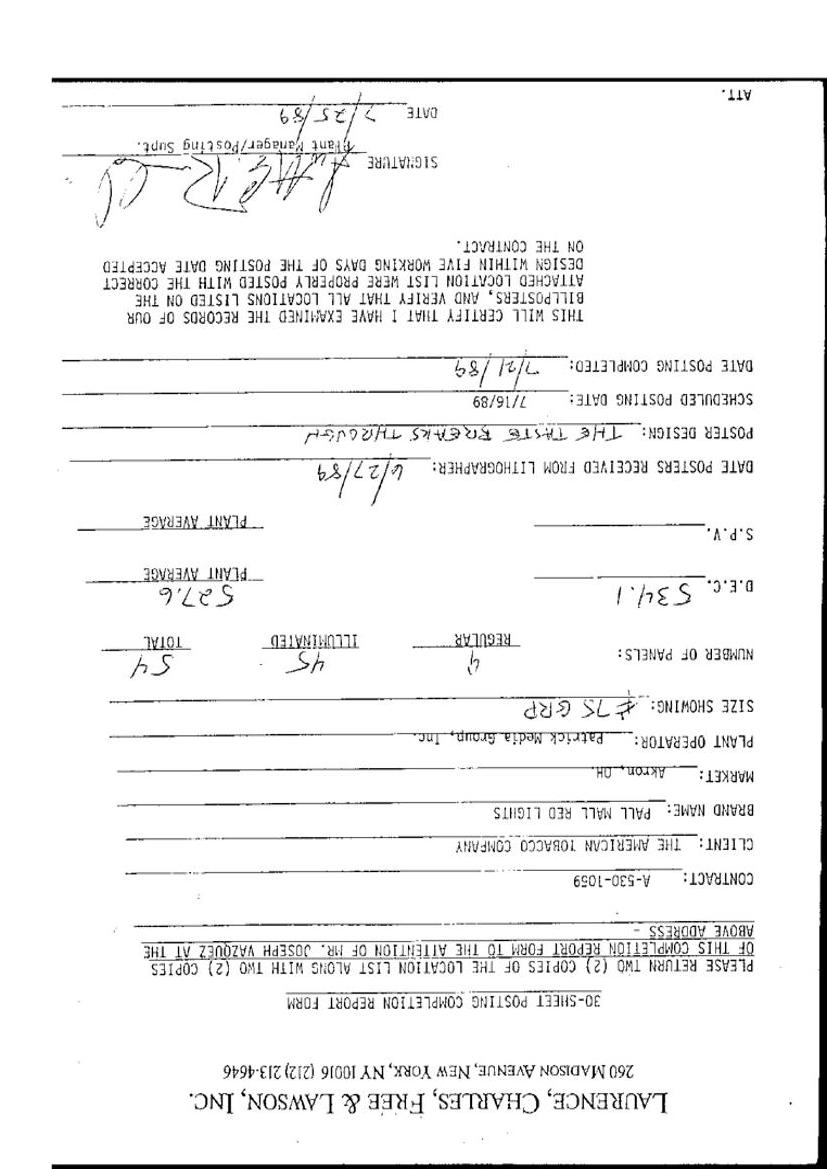 LAURENCE, CHARLES, FREE & LAWSON, INC.
260 MADISON AVENUE, NEW YORK, NY 10016 (212) 213-4646
30-SHEET POSTING COMPLETION REPORT FORM
PLEASE RETURN TWO (2) COPIES OF THE LOCATION LIST ALONG WITH TWO (2) COPIES
OF THIS COMPLETION REPORT FORM TO THE ATTENTION OF MR. JOSEPH VAZQUEZ AT THE
ABOVE ADDRESS -
CONTRACT: A-530-1059
CLIENT: THE AMERICAN TOBACCO COMPANY
BRAND NAME: PALL MALL RED LIGHTS
MARKET: Akron, OH.
PLANT OPERATOR: Patrick Media Group, Inc.
SIZE SHOWING: #75 GRP
NUMBER OF PANELS: 9 45 54
REGULAR ILLUMINATED TOTAL
D.E.C. 534.1 527.6
PLANT AVERAGE
S.P.V. PLANT AVERAGE
DATE POSTERS RECEIVED FROM LITHOGRAPHER: 6/27/89
POSTER DESIGN: THE TASTE BREAKS THROUGH
SCHEDULED POSTING DATE: 7/16/89
DATE POSTING COMPLETED: 7/21/89
THIS WILL CERTIFY THAT I HAVE EXAMINED THE RECORDS OF OUR
BILLPOSTERS, AND VERIFY THAT ALL LOCATIONS LISTED ON THE
ATTACHED LOCATION LIST WERE PROPERLY POSTED WITH THE CORRECT
DESIGN WITHIN FIVE WORKING DAYS OF THE POSTING DATE ACCEPTED
ON THE CONTRACT.
SIGNATURE
Plant Manager/Posting Supt.
DATE 7/25/89
ATT.